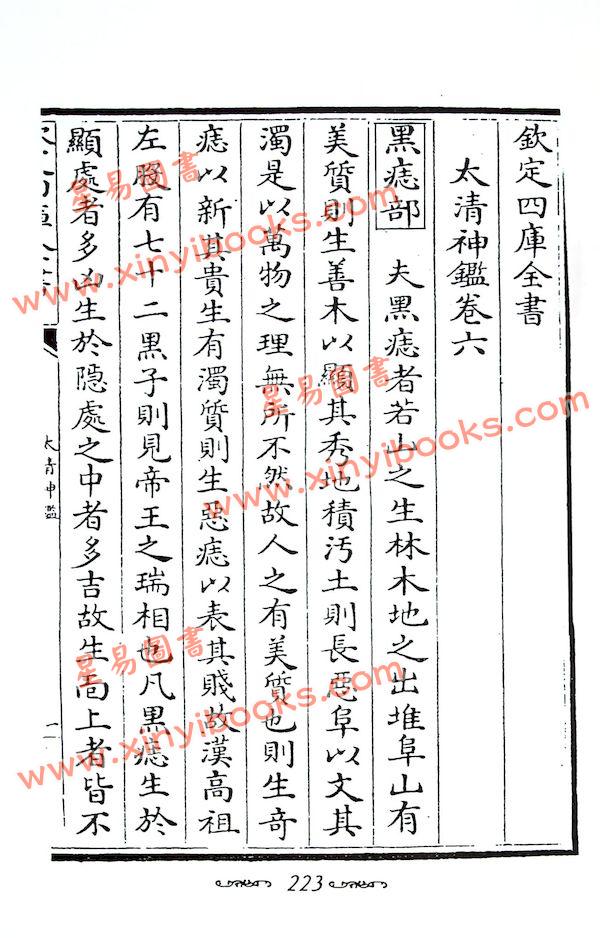 欽定四庫全書
太清神鑑卷六
黑痣部 夫黑痣者若山之生林木地之出堆阜山有
美質則生善木以顯其秀地積汚土則長惡阜以文其
濁是以萬物之理無所不然故人之有美質也則生奇
痣以新其貴生有濁質則生惡痣以表其賤故漢高祖
左股有七十二黑子則見帝王之瑞相也凡黑痣生於
顯處者多凶生於隱處之中者多吉故生面上者皆不
太清神鑑
一
223
星易圖書
www.xinyibooks.com
星易圖書
www.xinyibooks.com
星易圖書
www.xinyibooks.com